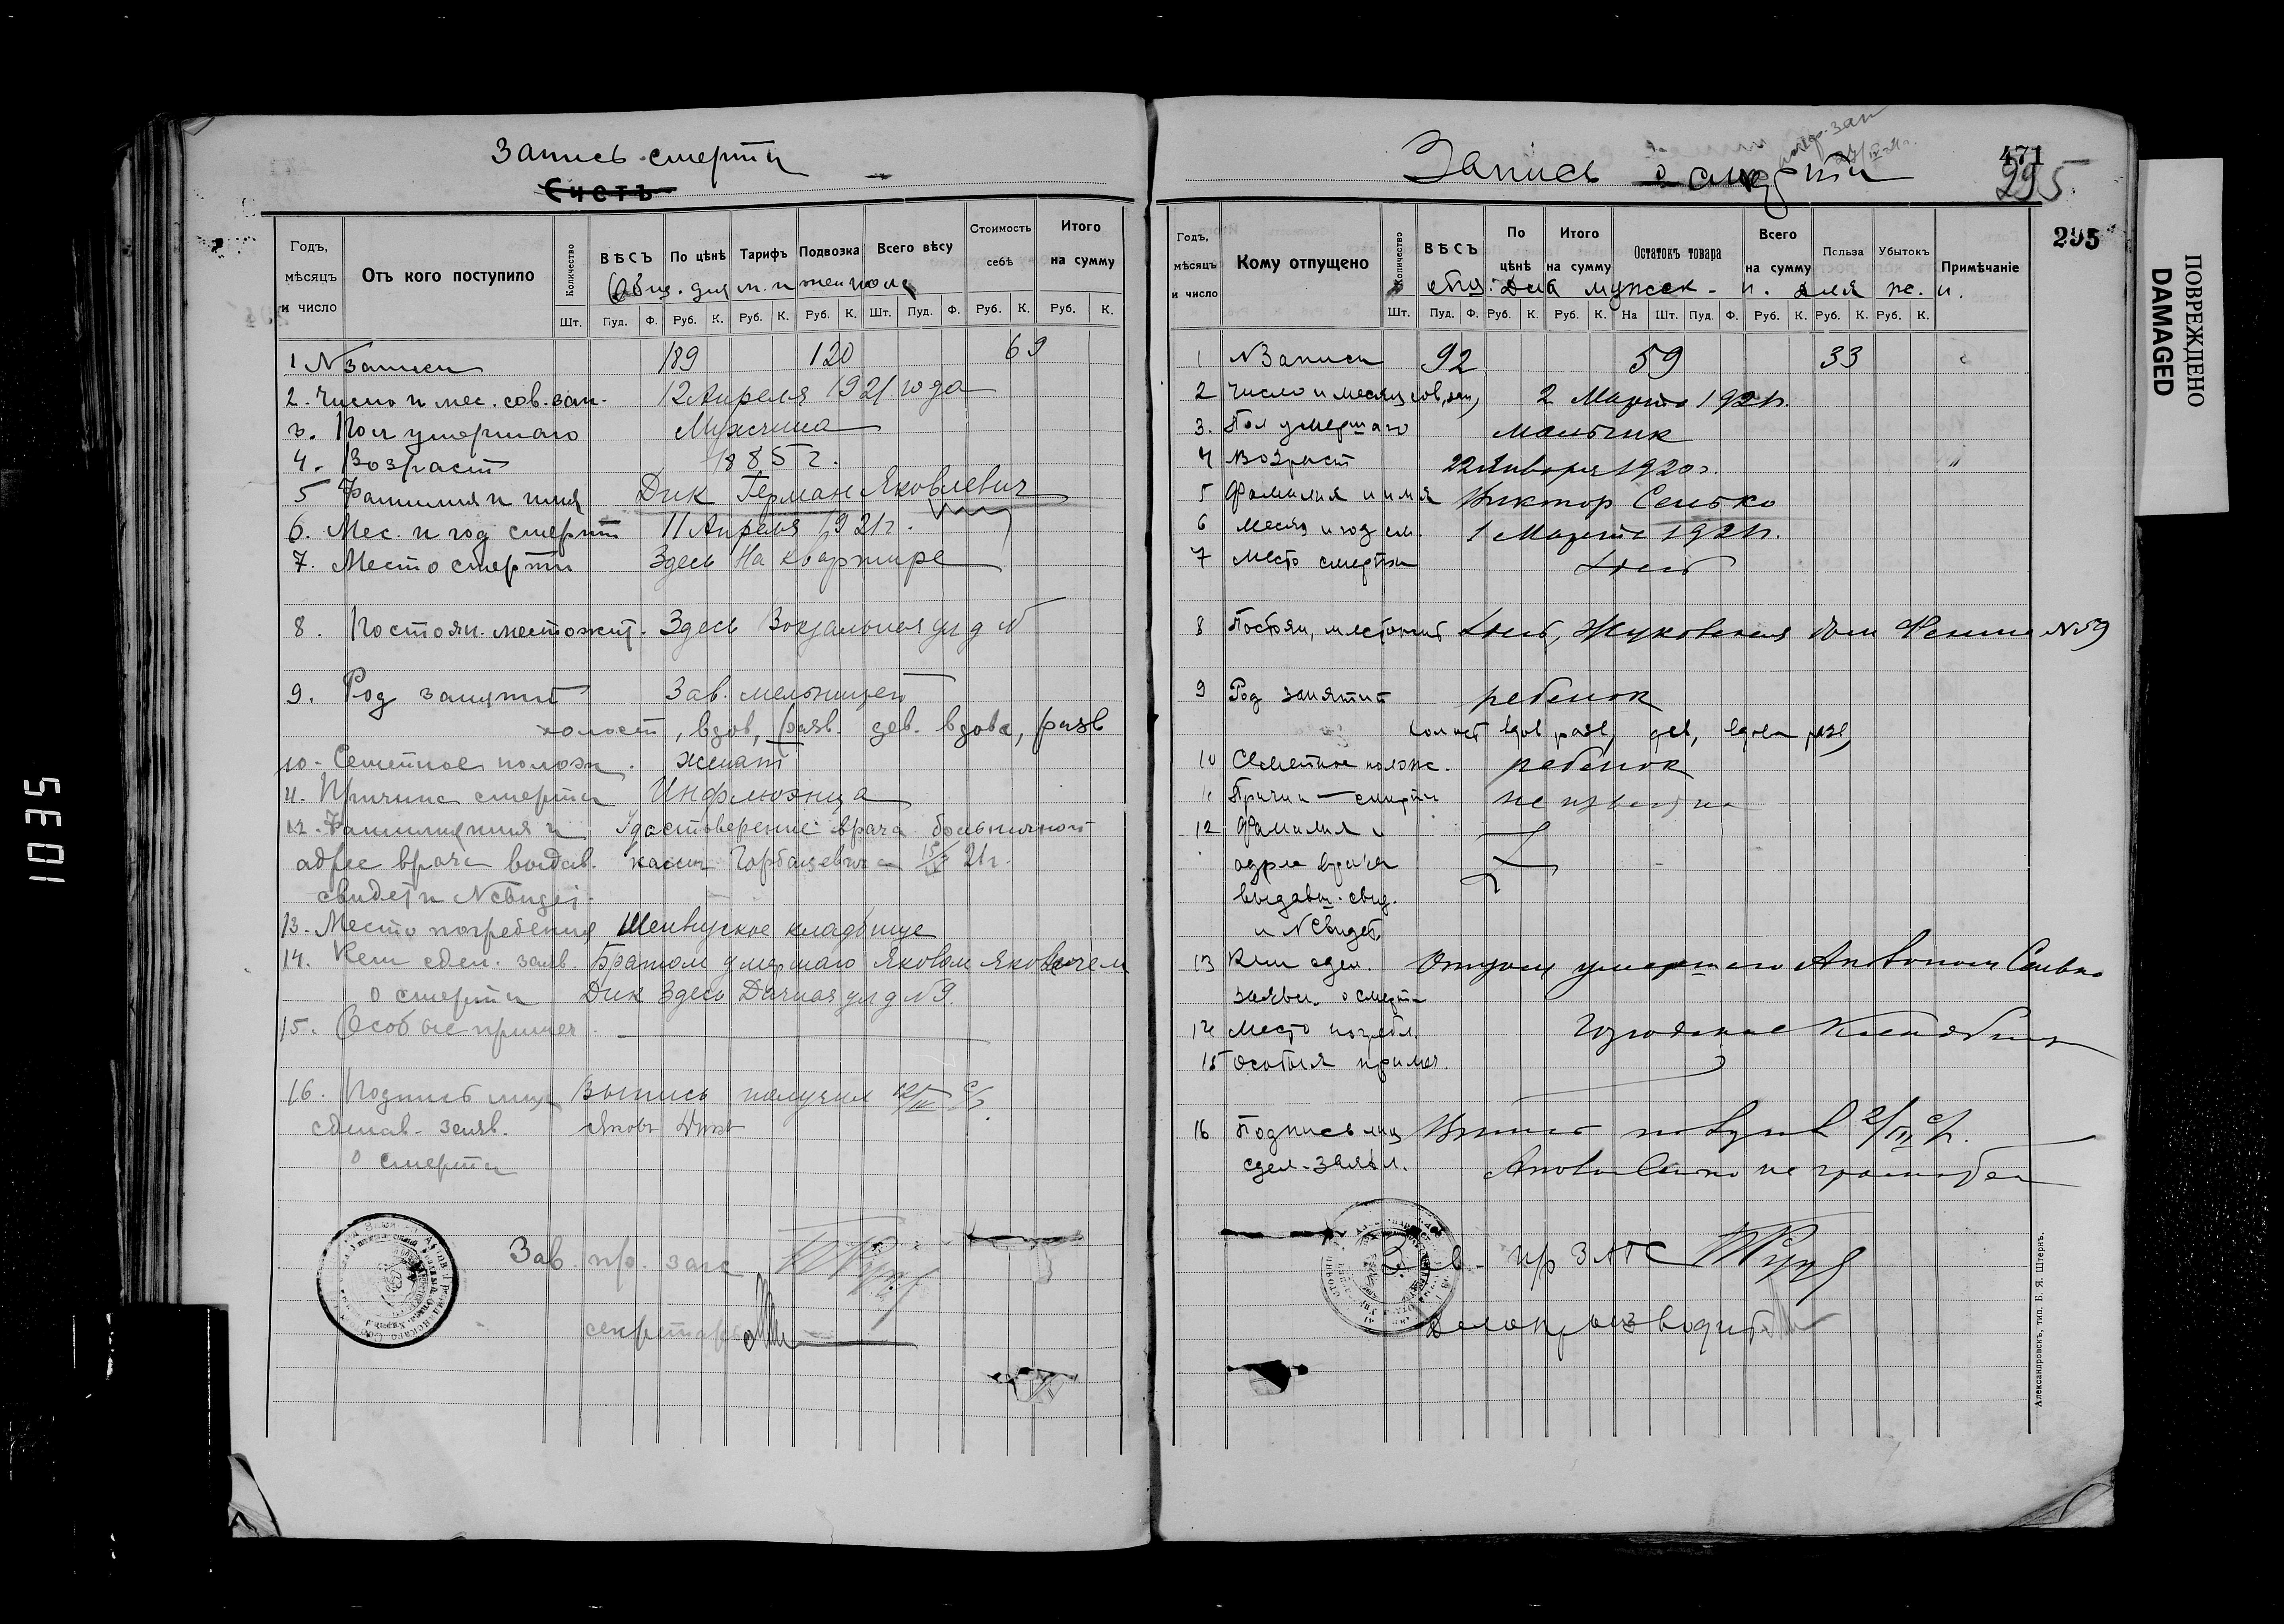 Запись смерти
Счетъ
Годъ, мѣсяцъ и число
Отъ кого поступило
Количество
ВѢСЪ По цѣнѣ Тарифъ Подвозка Всего вѣсу Стоимость себѣ Итого на сумму
Общ. для м. и жен пола
Шт. Пуд. Ф. Руб. К. Руб. К. Руб. К. Шт. Пуд. Ф. Руб. К. Руб. К.
1 N записи 189 120 69
2. Число и мес. сов. зап. 12 Апреля 1921 года
3. Пол умершаго Мужчина
4. Возраст 1885 г.
5 Фамилия и имя Дик Герман Яковлевич
6. Мес. и год смерти 11 Апреля 1921 г.
7. Место смерти Здесь На квартире
8. Постоян. местожит. Здесь Вокзальная ул д N
9. Род занятий Зав. мельницей
холост, вдов, разв. дев. вдова, разв
10. Семейное полож. женат
11. Причина смерти Инфлюэнца
12. Фамилия имя и Удостоверение врача больничной
адрес врача выдав. кассы Горбацевича 15/IV 21 г.
свидет и N свидет.
13. Место погребения Шенвиское кладбище
14. Кем сдел. заяв. Братом умершаго Яковом Яковлевичем
о смерти Дик Здесь Дачная ул д N 9.
15. Особые примеч.
16. Подпись лиц Выпись получил 12/IV с/г.
сделав. заяв. Яковъ Дикъ
о смерти
Зав. пр. загс
секретарь
Запись о смерти
471
295
295
Годъ, мѣсяцъ и число
Кому отпущено
Количество
ВѢСЪ По цѣнѣ Итого на сумму Остатокъ товара Всего на сумму Польза Убытокъ Примѣчаніе
общ. для мужск. п. для ж. п.
Шт. Пуд. Ф. Руб. К. Руб. К. На Шт. Пуд. Ф. Руб. К. Руб. К. Руб. К.
1 N Записи 92 59 33
2 Число и месяц сов. зап, 2 Марта 1921 г.
3. Пол умершаго мальчик
4 Возраст 22 Января 1920 г.
5 Фамилия и имя Виктор Сенько
6 Месяц и год см. 1 Марта 1921 г.
7 Место смерти здесь
8 Постоян, местожит здесь, Жуковская дом N 59
9 Род занятий ребенок
холост вдов разв, дев, вдова разв,
10 Семейное полож. ребенок
11 Причина смерти неизвестна
12 Фамилия и
адрес врача
выдавш. свид.
и N Свидет.
13 Кем сдел. Отцом умершаго Антоном Сенько
заявл. о смерти
14 Место погребл. Городское Кладбище
15 Особыя примеч.
16 Подпись лиц Выпись получил 2/III с/г.
сдел. заявл. Антон Сенько не грамотен
Зав. пр ЗАГС
Делопроизводит.
Александровскъ, тип. Б. Я. Штернъ.
ПОВРЕЖДЕНО
DAMAGED
1035